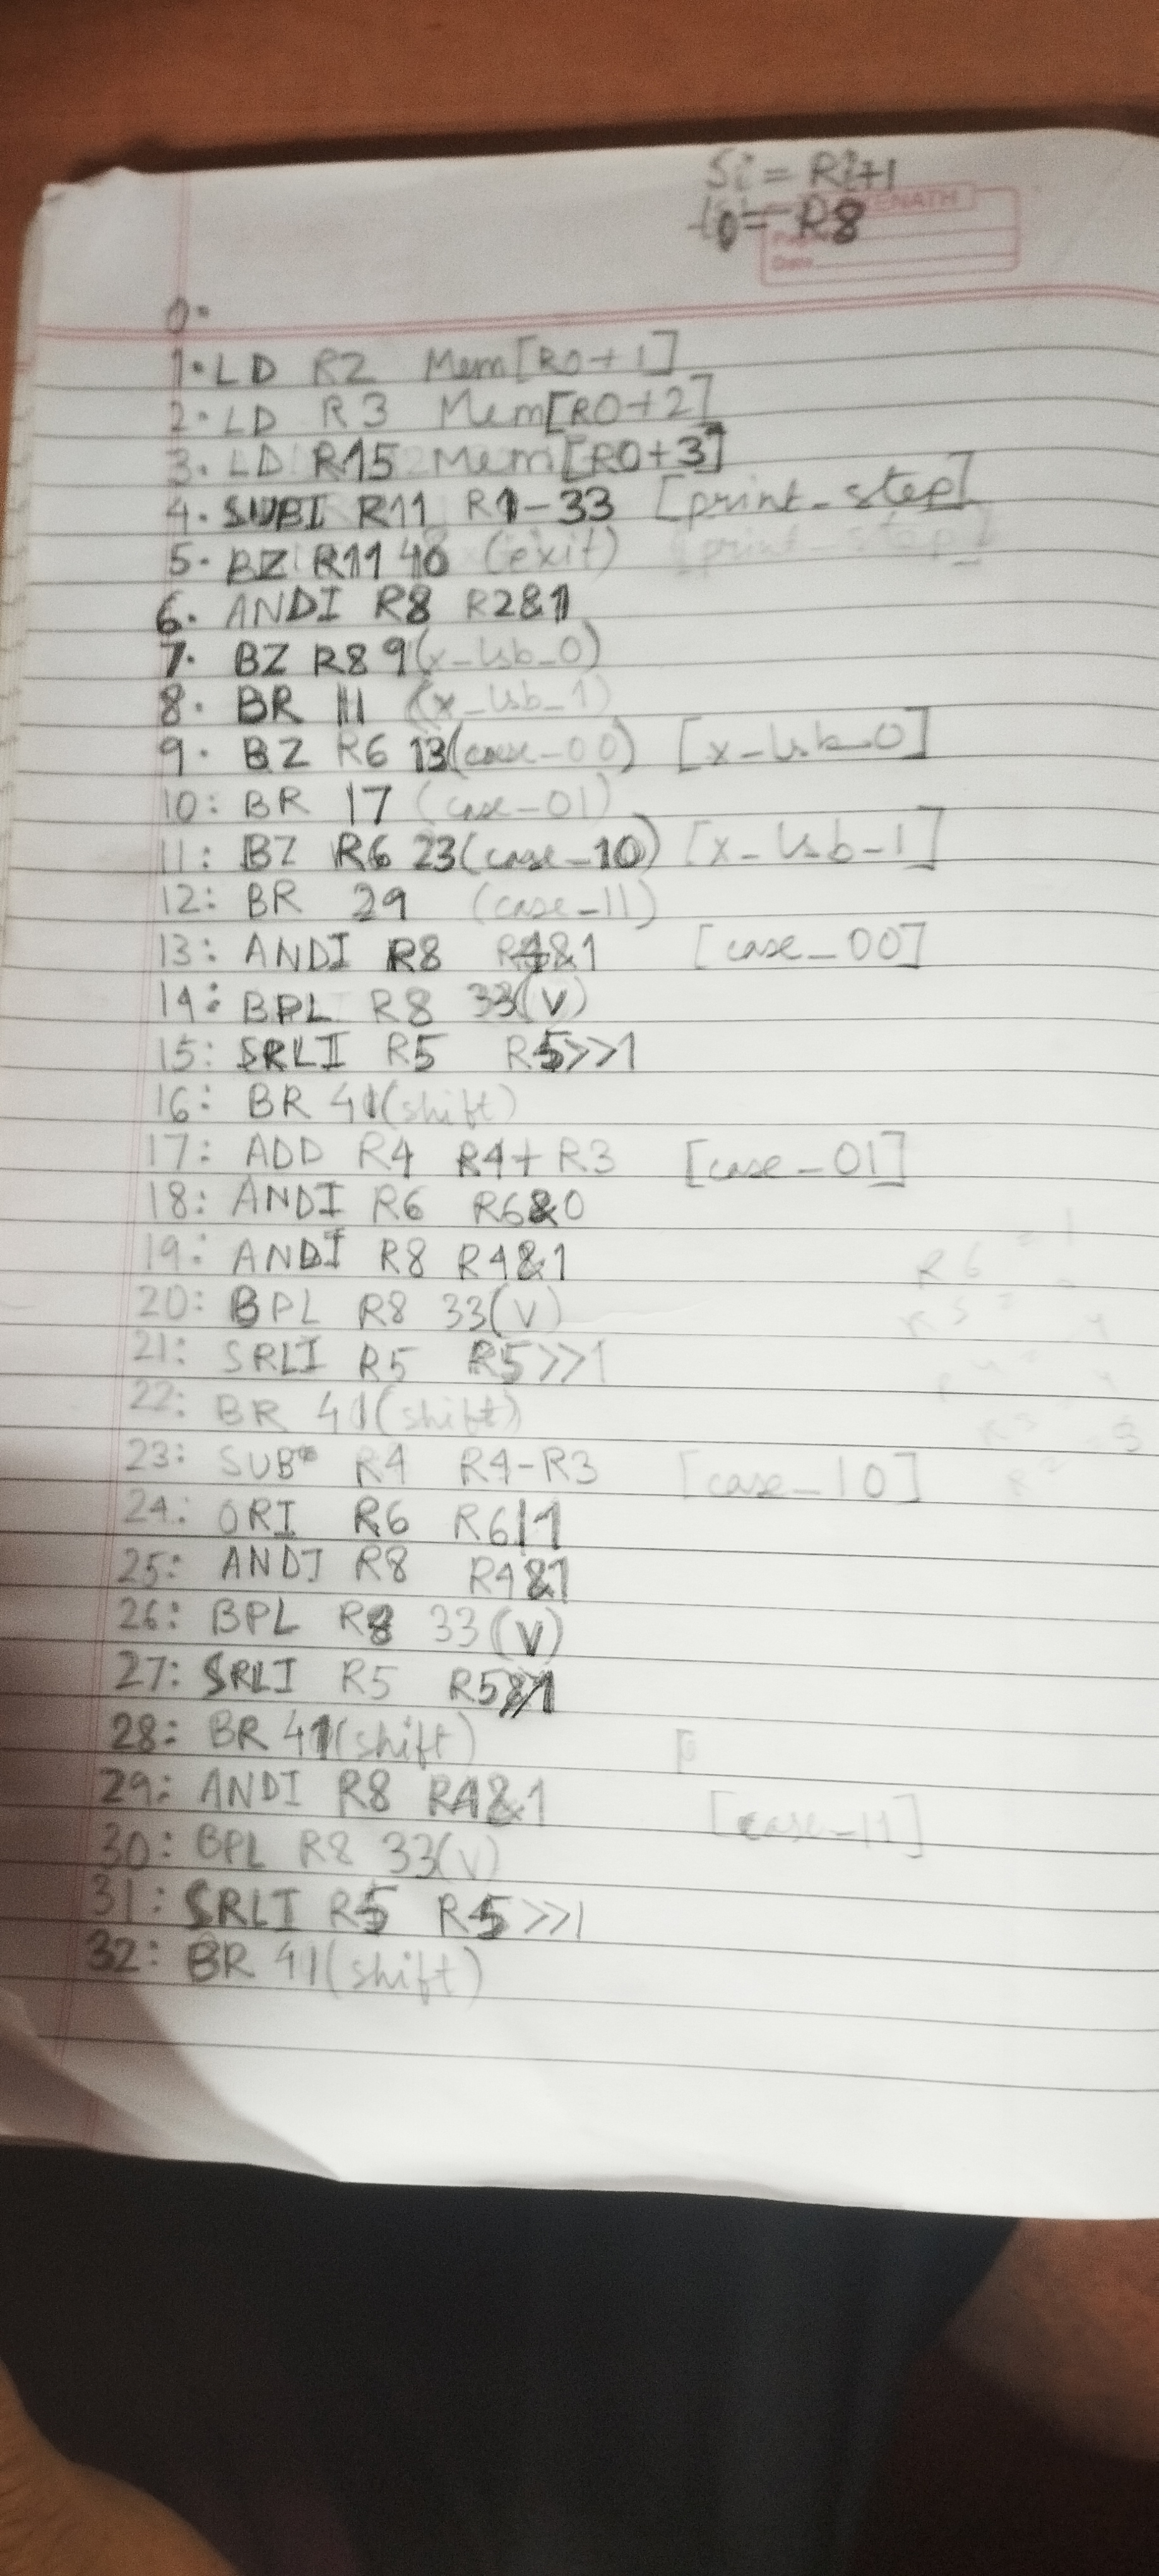 Si = Ri+1
t0 = R8
ENATH
Date
0.
1. LD R2 Mem[R0+1]
2. LD R3 Mem[R0+2]
3. LD R15 Mem[R0+3]
4. SUBI R11 R1-33 [print_step]
5. BZ R11 40 (exit) [print_step]
6. ANDI R8 R2&1
7. BZ R8 9(x_lsb_0)
8. BR 11 (x_lsb_1)
9. BZ R6 13(case_00) [x_lsb_0]
10: BR 17 (case_01)
11: BZ R6 23(case_10) [x_lsb_1]
12: BR 29 (case_11)
13: ANDI R8 R4&1 [case_00]
14: BPL R8 33(v)
15: SRLI R5 R5>>1
16: BR 41(shift)
17: ADD R4 R4+R3 [case_01]
18: ANDI R6 R6&0
19: ANDI R8 R4&1
20: BPL R8 33(v)
21: SRLI R5 R5>>1
22: BR 41(shift)
23: SUB R4 R4-R3 [case_10]
24: ORI R6 R6|1
25: ANDI R8 R4&1
26: BPL R8 33(v)
27: SRLI R5 R5>>1
28: BR 41(shift) [
29: ANDI R8 R4&1 [case_11]
30: BPL R8 33(v)
31: SRLI R5 R5>>1
32: BR 41(shift)